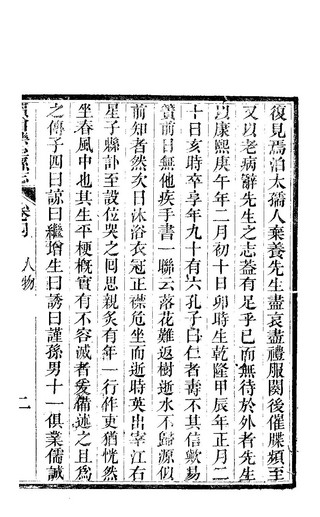 復見焉洎太孺人棄養先生盡哀盡禮服闋後催牒頻至
又以老病辭先生之志蓋有足乎已而無待於外者先生
以康熙庚午年二月初十日卯時生乾隆甲辰年正月二
十日亥時卒享年九十有六孔子曰仁者壽不其信歟易
簀前日無他疾手書一聯云落花難返樹逝水不歸源似
前知者然次日沐浴衣冠正襟危坐而逝時英出宰江右
星子縣訃至設位哭之囘思親炙有年一行作吏猶恍然
坐春風中也其生平梗概實有不容者爰備述之且為
之傳子四曰諒曰繼增生曰誘曰謹孫男十一俱業儒誠
卷 人物 二